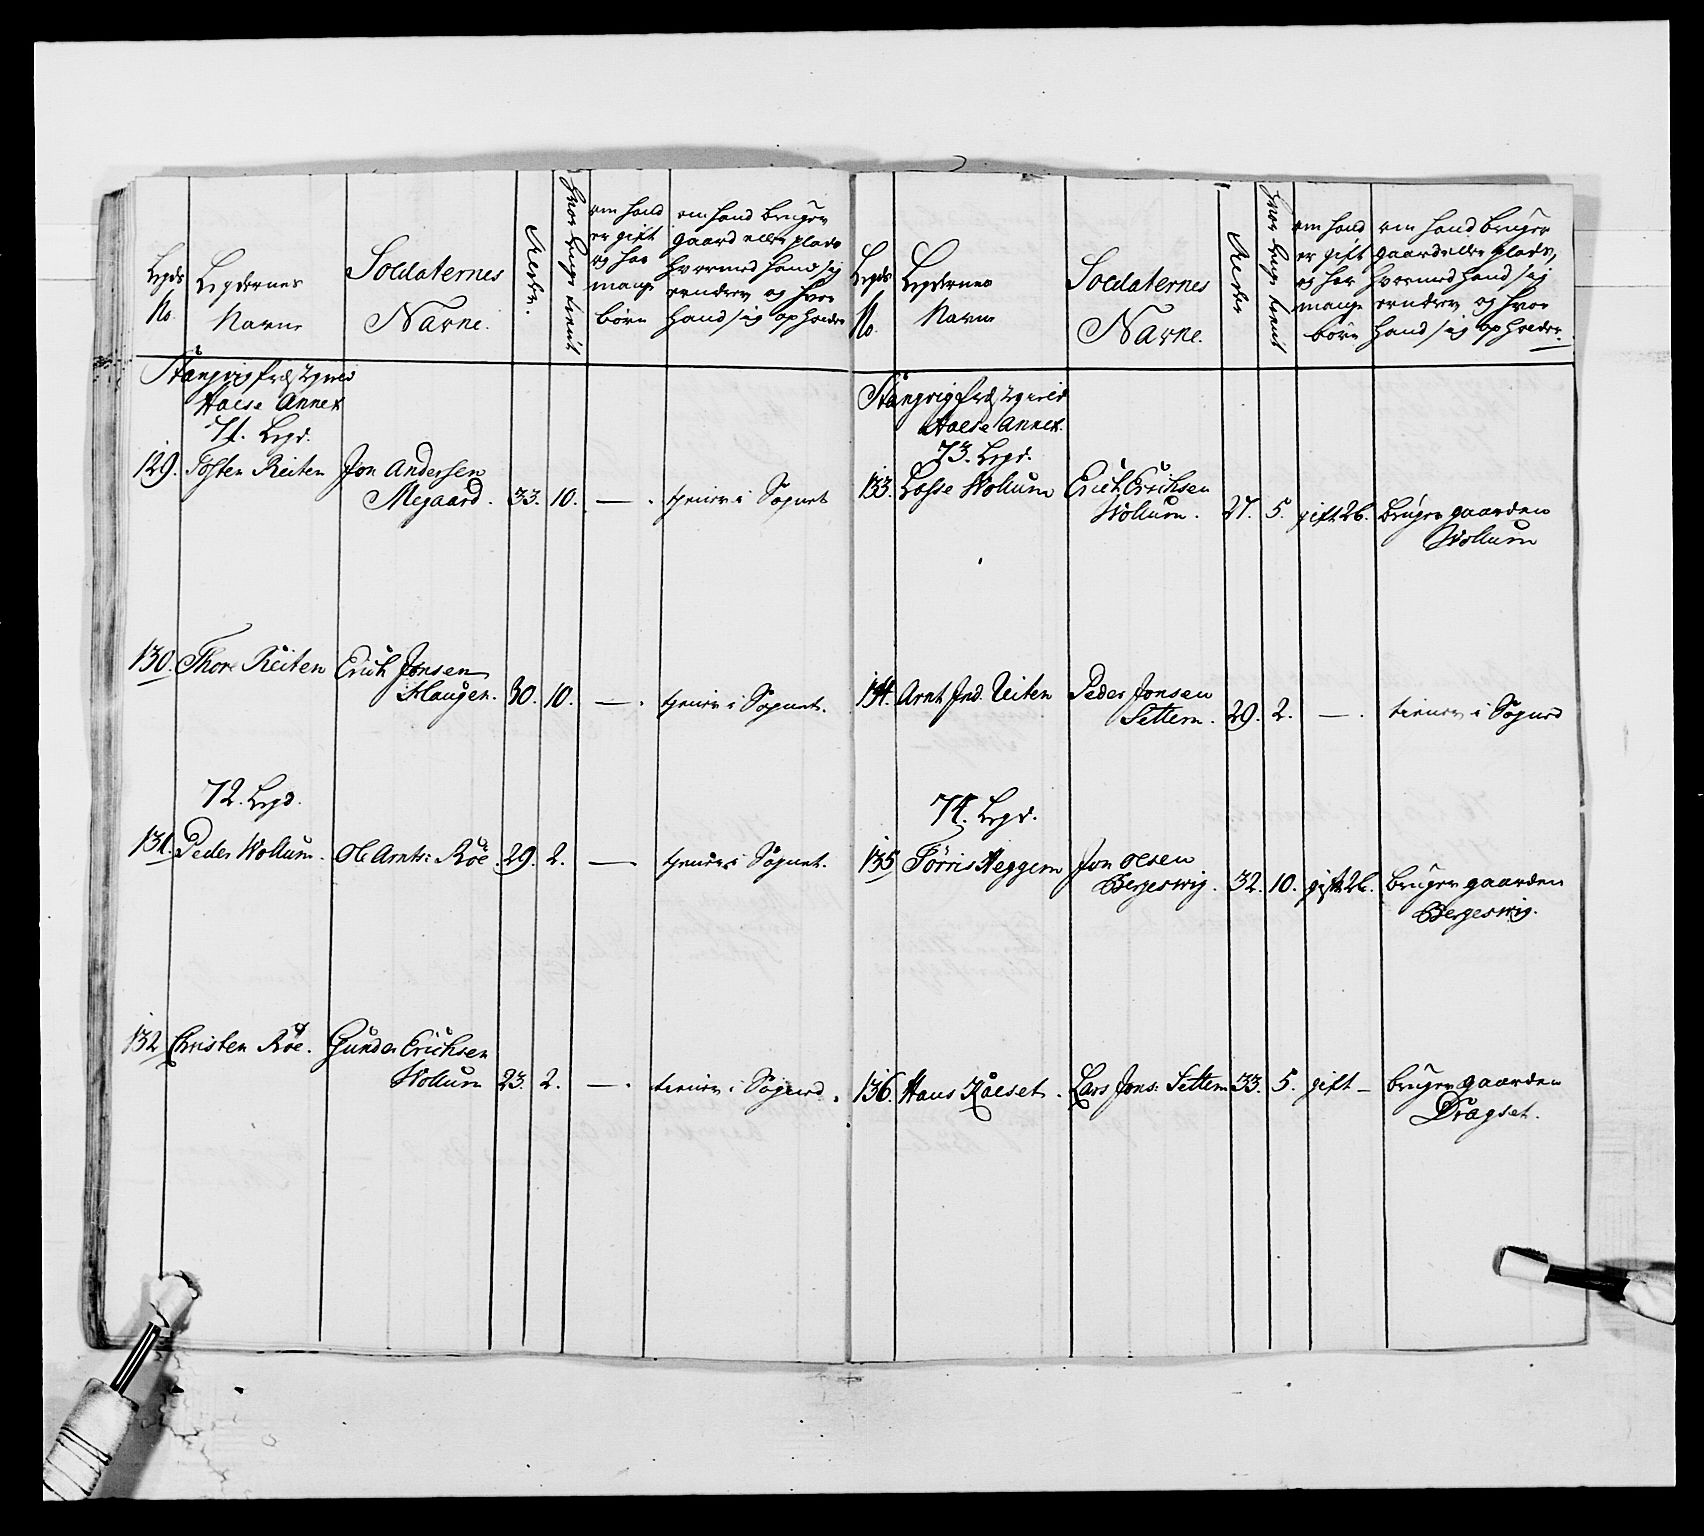 Legds
No
Legdernes
Navne
Soldaternes
Navne.
Alder.
hvor lenge tient
om hand
er gift
og har
mange
börn
om hand bruger
gaard eller plads
hvormed hand sig
ernærer og hvor
hand sig opholder
Stangvig
Aase Annex
71. Legd.
129. Tosten Reiten Jon Andersen
Megaard. 33. 10. — . tjener i Sognet
130. Thore Reiten Erich Jonsen
Haugen. 30. 10. — . tjener i Sognet.
72. Legd.
131. Peder Wollum. Ole Arnts: Röe. 29. 2. — tjener i Sognet.
132 Christen Röe. Gunder Erichsen
Wollum 23. 2. — . tiener i Sognet.
Legds
No.
Legdernes
Navne
Soldaternes
Navne.
Alder
hvor lenge tient
om hand
er gift
og har
mange
börn
om hand bruger
gaard eller plads,
hvormed hand sig
ernærer og hvor
hand sig opholder.
Stangvig
Aase Annex.
73. Legd.
133. Lasse Wollum Erich Erichsen
Wollum. 27. 5. gift 2b. bruger gaarden
Wollum
134. Arnt Ind. Reiten Peder Jonsen
Settem. 29. 2. — . tiener i Sognet
74. Legd.
135 Törris Heggem Jon Olsen
Bergeswig. 32. 10. gift 2b. bruger gaarden
Bergeswig.
136. Hans Kaaset. Lars Jons: Settem 33. 5. gift — bruger gaarden
Dragset.